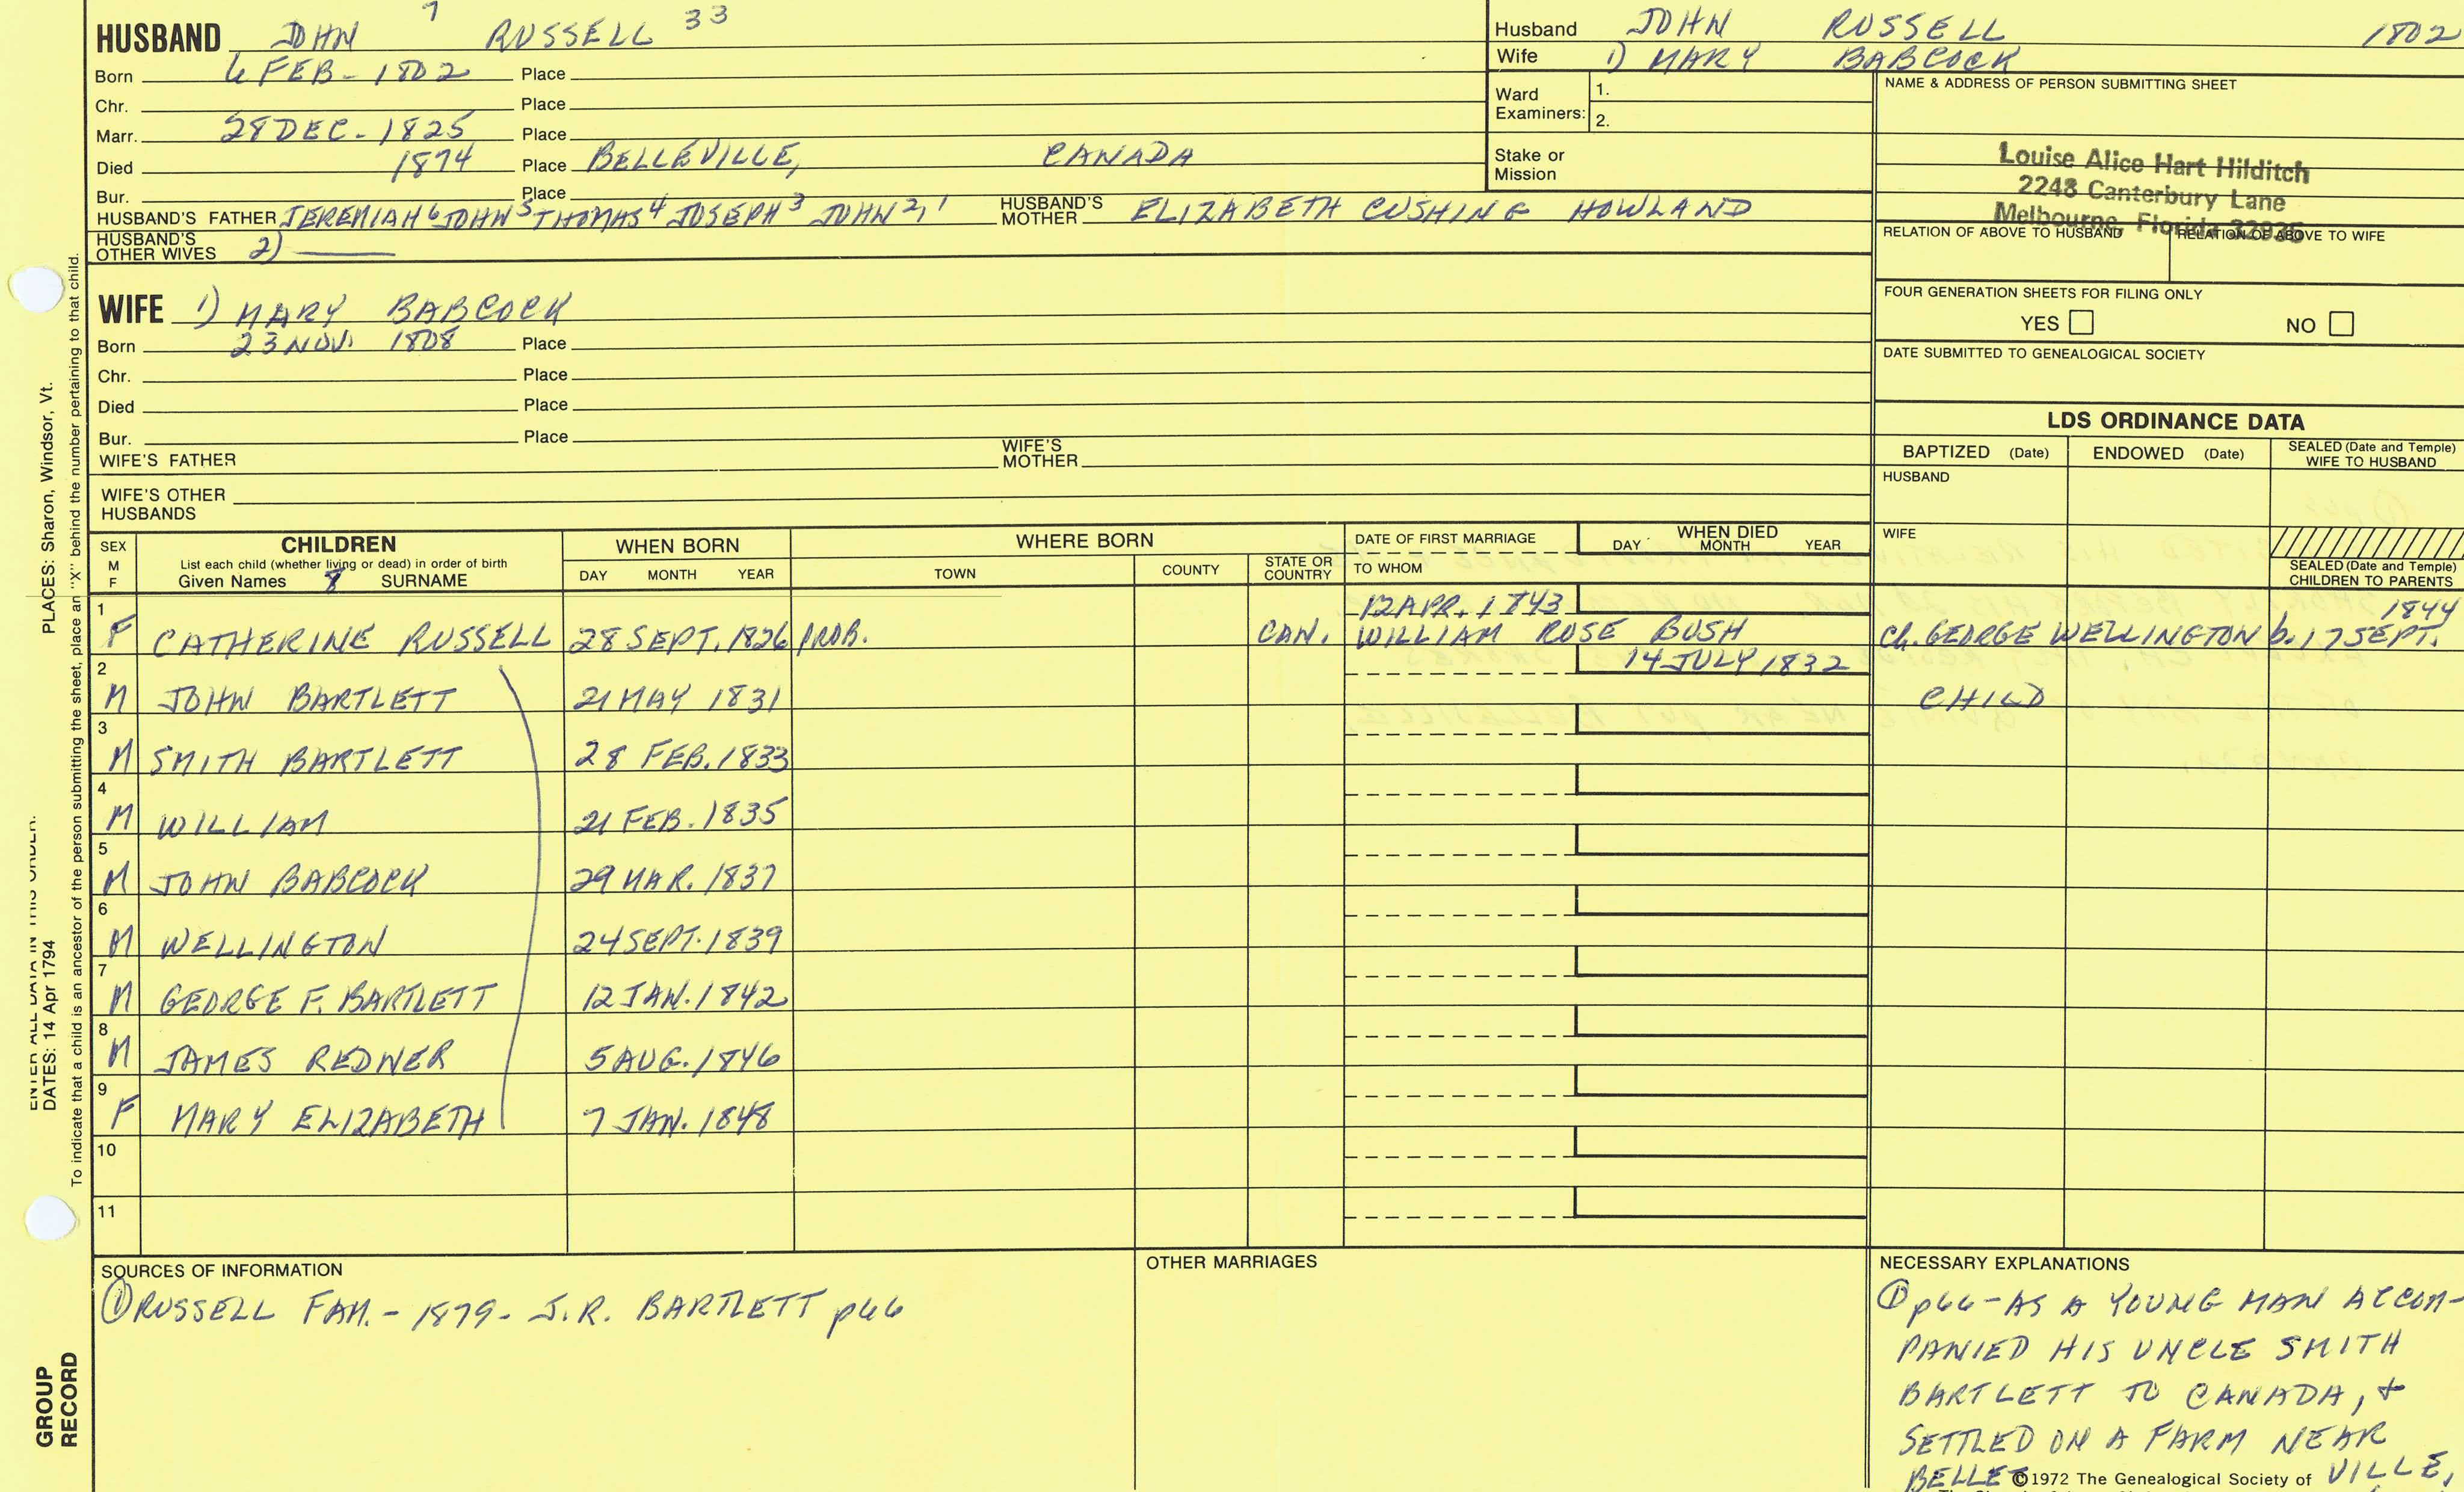 HUSBAND JOHN 7 RUSSELL 33
Born 6 FEB- 1802 Place
Chr. Place
Marr. 28 DEC- 1825 Place
Died 1874 Place BELLEVILLE, CANADA
Bur. Place
HUSBAND'S FATHER JEREMIAH 6 JOHN 5 THOMAS 4 JOSEPH 3 JOHN 2, 1 HUSBAND'S MOTHER ELIZABETH CUSHING HOWLAND
HUSBAND'S OTHER WIVES 2)
Husband JOHN RUSSELL 1802
Wife 1) MARY BABCOCK
Ward Examiners: 1.
2.
Stake or Mission
NAME & ADDRESS OF PERSON SUBMITTING SHEET
Louise Alice Hart Hilditch
2248 Canterbury Lane
Melbourne, Florida 32935
RELATION OF ABOVE TO HUSBAND RELATION OF ABOVE TO WIFE
FOUR GENERATION SHEETS FOR FILING ONLY
YES NO
DATE SUBMITTED TO GENEALOGICAL SOCIETY
WIFE 1) MARY BABCOCK
Born 23 NOV. 1808 Place
Chr. Place
Died Place
Bur. Place
WIFE'S FATHER WIFE'S MOTHER
WIFE'S OTHER HUSBANDS
LDS ORDINANCE DATA
BAPTIZED (Date) ENDOWED (Date) SEALED (Date and Temple) WIFE TO HUSBAND
HUSBAND
WIFE
SEALED (Date and Temple) CHILDREN TO PARENTS
SEX M F
CHILDREN
List each child (whether living or dead) in order of birth
Given Names 8 SURNAME
WHEN BORN
DAY MONTH YEAR
WHERE BORN
TOWN COUNTY STATE OR COUNTRY
DATE OF FIRST MARRIAGE
TO WHOM
WHEN DIED
DAY MONTH YEAR
1 12 APR. 1843 1844
F CATHERINE RUSSELL 28 SEPT. 1826 PROB. CAN. WILLIAM ROSE BUSH Ch. GEORGE WELLINGTON b. 17 SEPT.
2 14 JULY 1832
M JOHN BARTLETT 21 MAY 1831 CHILD
3
M SMITH BARTLETT 28 FEB. 1833
4
M WILLIAM 21 FEB. 1835
5
M JOHN BABCOCK 29 MAR. 1837
6
M WELLINGTON 24 SEPT. 1839
7
M GEORGE F. BARTLETT 12 JAN. 1842
8
M JAMES REDNER 5 AUG. 1846
9
F MARY ELIZABETH 7 JAN. 1848
10
11
SOURCES OF INFORMATION
① RUSSELL FAM. - 1879 - J.R. BARTLETT p66
OTHER MARRIAGES
NECESSARY EXPLANATIONS
① p66 - AS A YOUNG MAN ACCOM-
PANIED HIS UNCLE SMITH
BARTLETT TO CANADA, +
SETTLED ON A FARM NEAR
BELLE VILLE,
©1972 The Genealogical Society of
PLACES: Sharon, Windsor, Vt.
ENTER ALL DATA IN THIS ORDER:
DATES: 14 Apr 1794
To indicate that a child is an ancestor of the person submitting the sheet, place an "X" behind the number pertaining to that child.
GROUP
RECORD